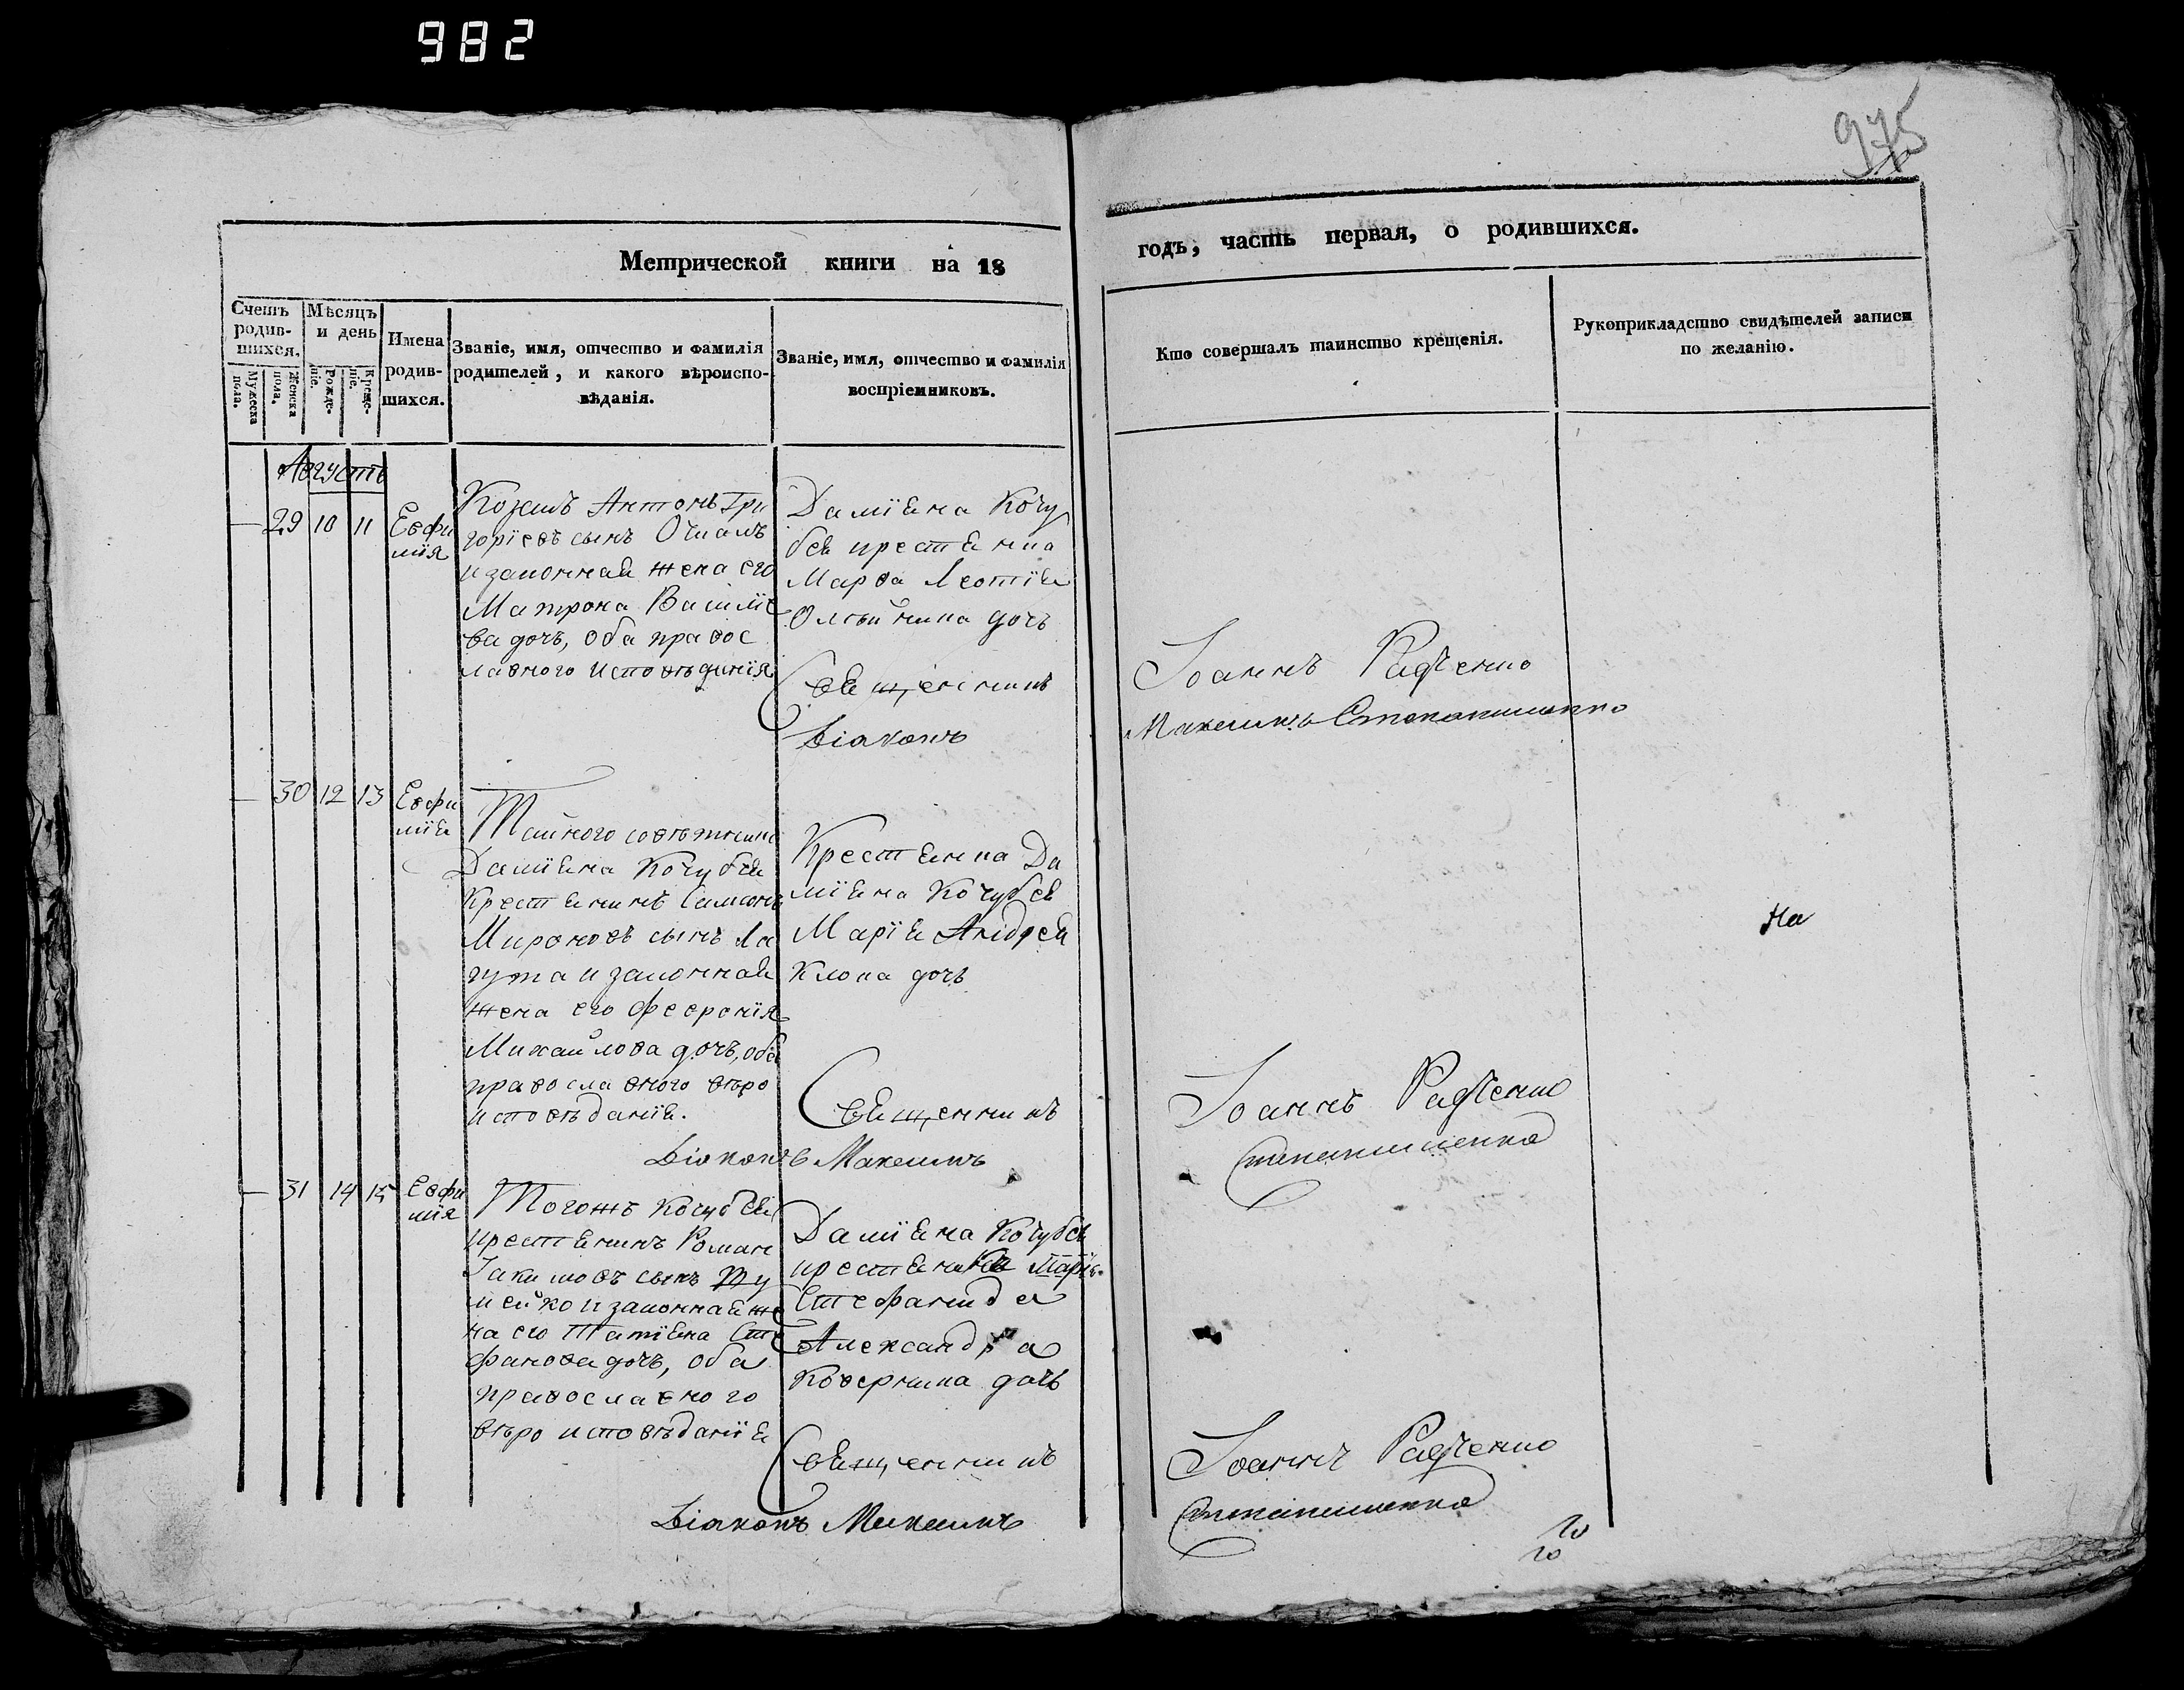 982
975
Метрической книги на 18
годъ, часть первая, о родившихся.
Счетъ родив-шихся.
Мужеска пола.
Женска пола.
Мѣсяцъ и день
Рожде-ніе.
Креще-ніе.
Имена родив-шихся.
Званіе, имя, отчество и фамилія
родителей, и какого вѣроиспо-
вѣданія.
Званіе, имя, отчество и фамилія
воспріемниковъ.
Кто совершалъ таинство крещенія.
Рукоприкладство свидѣтелей записи
по желанію.
Августъ
— 29 10 11
Евфи
мія
Козакъ Антонъ Гри
горіевъ сынъ
и законная жена его
Матрона Василіе
ва дочь, оба правос
лавного исповѣданія
Даміяна Кочу
бея крестянка
Марѳа Леотія
дочь
Священникъ
Діаконъ
Іоаннъ Радченко
Максимъ
— 30 12 13
Евфи
мія
Тайного совѣтника
Даміяна Кочубея
Крестянинъ Симонъ
Мироновъ сынъ Ла
гута и законная
жена его Феѵронія
Михайлова дочь, оба
православного вѣро
исповѣданія.
Крестянка Да
міяна Кочубея
Марія Андрея
Клопа дочь
Священникъ
Діаконъ Максимъ
Іоаннъ Радченко
На
— 31 14 15
Евфи
мія
Тогожъ Кочубея
крестянинъ Роман
Іакимовъ сынъ
и законная же
на его Татіяна Сте
фанова дочь, оба
православного
вѣроисповѣданія
Даміяна Кочубея
крестянка
Стефанида
Александра
дочь
Священникъ
Діаконъ Максимъ
Іоаннъ Радченко